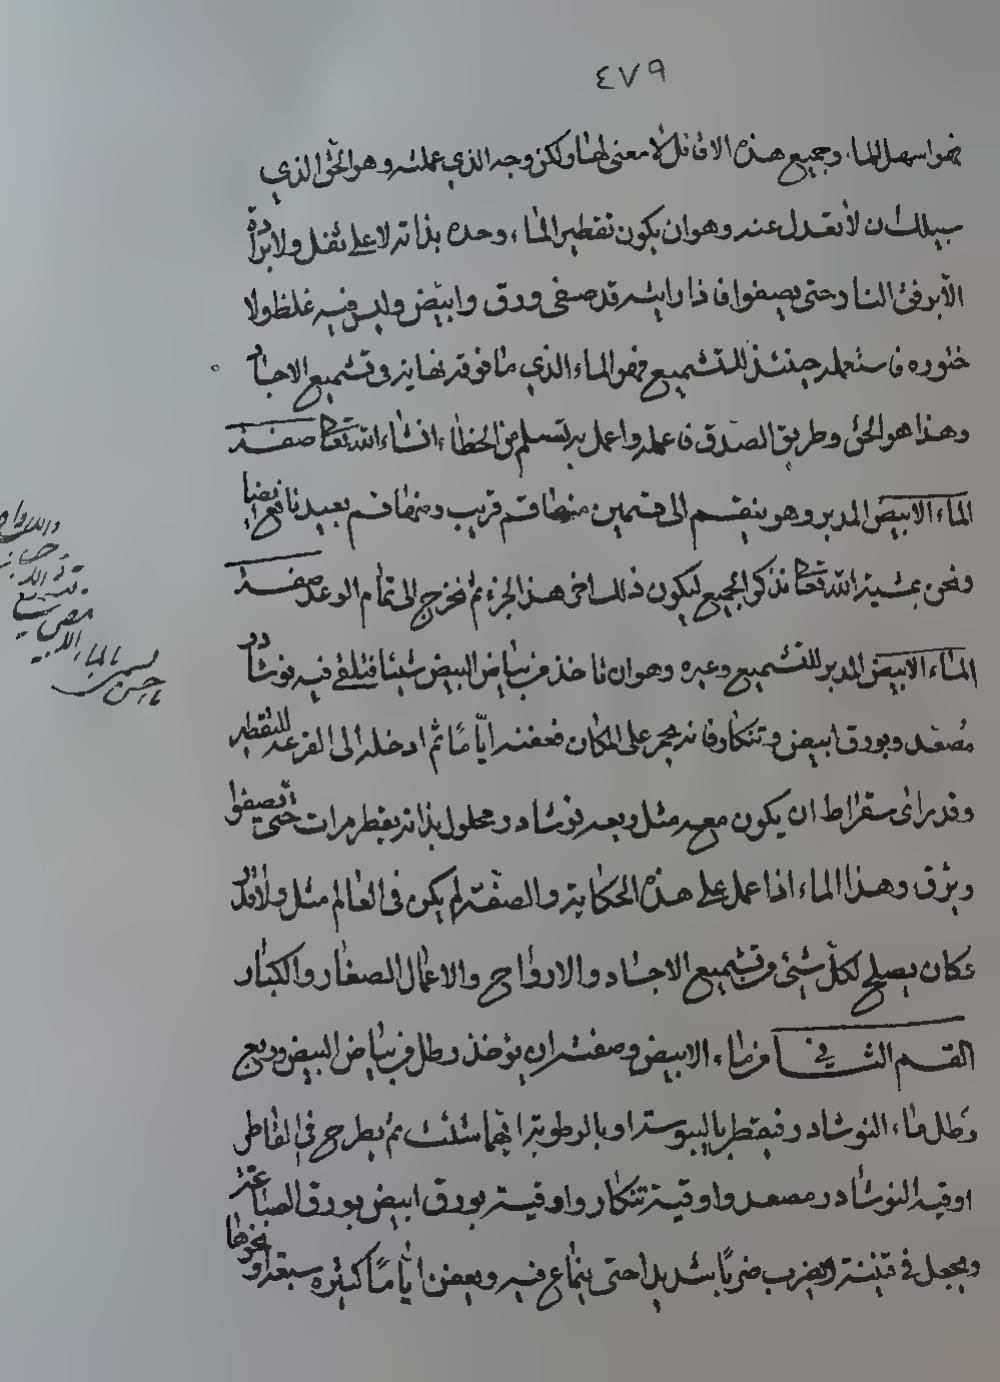 ٤٧٩
فهو اسهل للماء وجميع هذه الاقائل لا معنى لها ولكن وجه الذي عملته وهو الحق الذي
سبيلك ان لا تعدل عنه وهو ان يكون تقطير الماء وحده بذاته لا على ثفل ولا برادة
الا برفق النار حتى يصفوا فاذا رايته قد صفى ورق وابيض وليس فيه غلظ ولا
خثوره فاستعمله حينئذ للتشميع فهو الماء الذي ما فوقه نهاية في تشميع الاجساد
وهذا هو الحق وطريق الصدق فاعمله واعمل به تسلم من الخطاء انشاء الله تعالى صفة
الماء الابيض المدبر وهو ينقسم الى قسمين منها قسم قريب ومنها قسم بعيد نافع ايضا
ونحن بمشية الله تعالى نذكر الجميع ليكون ذلك في هذا الجزء ثم نخرج الى تمام الوعد صفة
الماء الابيض المدبر للتشميع وغيره وهو ان تاخذ من بياض البيض شيئا فتلقى فيه نوشادر
مصعد وبورق ابيض وتنكار فانه يجر على المكان فعفنه اياما ثم ادخله الى القرعة للتقطير
وقد راى سقراط ان يكون معه مثل ربعه نوشادر محلول بذاته يقطر مرات حتى يصفوا
ويرق وهذا الماء اذا عمل على هذه الحكاية والصفة لم يكن في العالم مثله ولا قدر
فكان يصلح لكل شئ من تشميع الاجساد والارواح والاعمال الصغار والكبار
القسم الثاني من ماء الابيض وصفته ان يؤخذ رطل من بياض البيض وربع
رطل ماء النوشادر فيقطر باليبوسة او بالرطوبة ايهما شئت ثم يطرح في القاطر
اوقية النوشادر مصعد واوقية تنكار واوقية بورق ابيض بورق الصاغة
ويجعل في قنينة ويضرب ضربا شديدا حتى ينماع فيه ويعفن اياما كثيره سبعة او نحوها